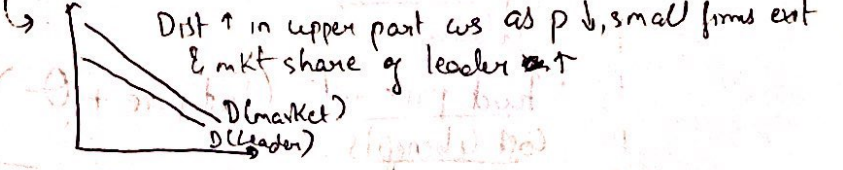 Dist ↑ in upper part cus as p ↓, small firms exit
& mkt share of leader ↑
D(market)
D(Leader)